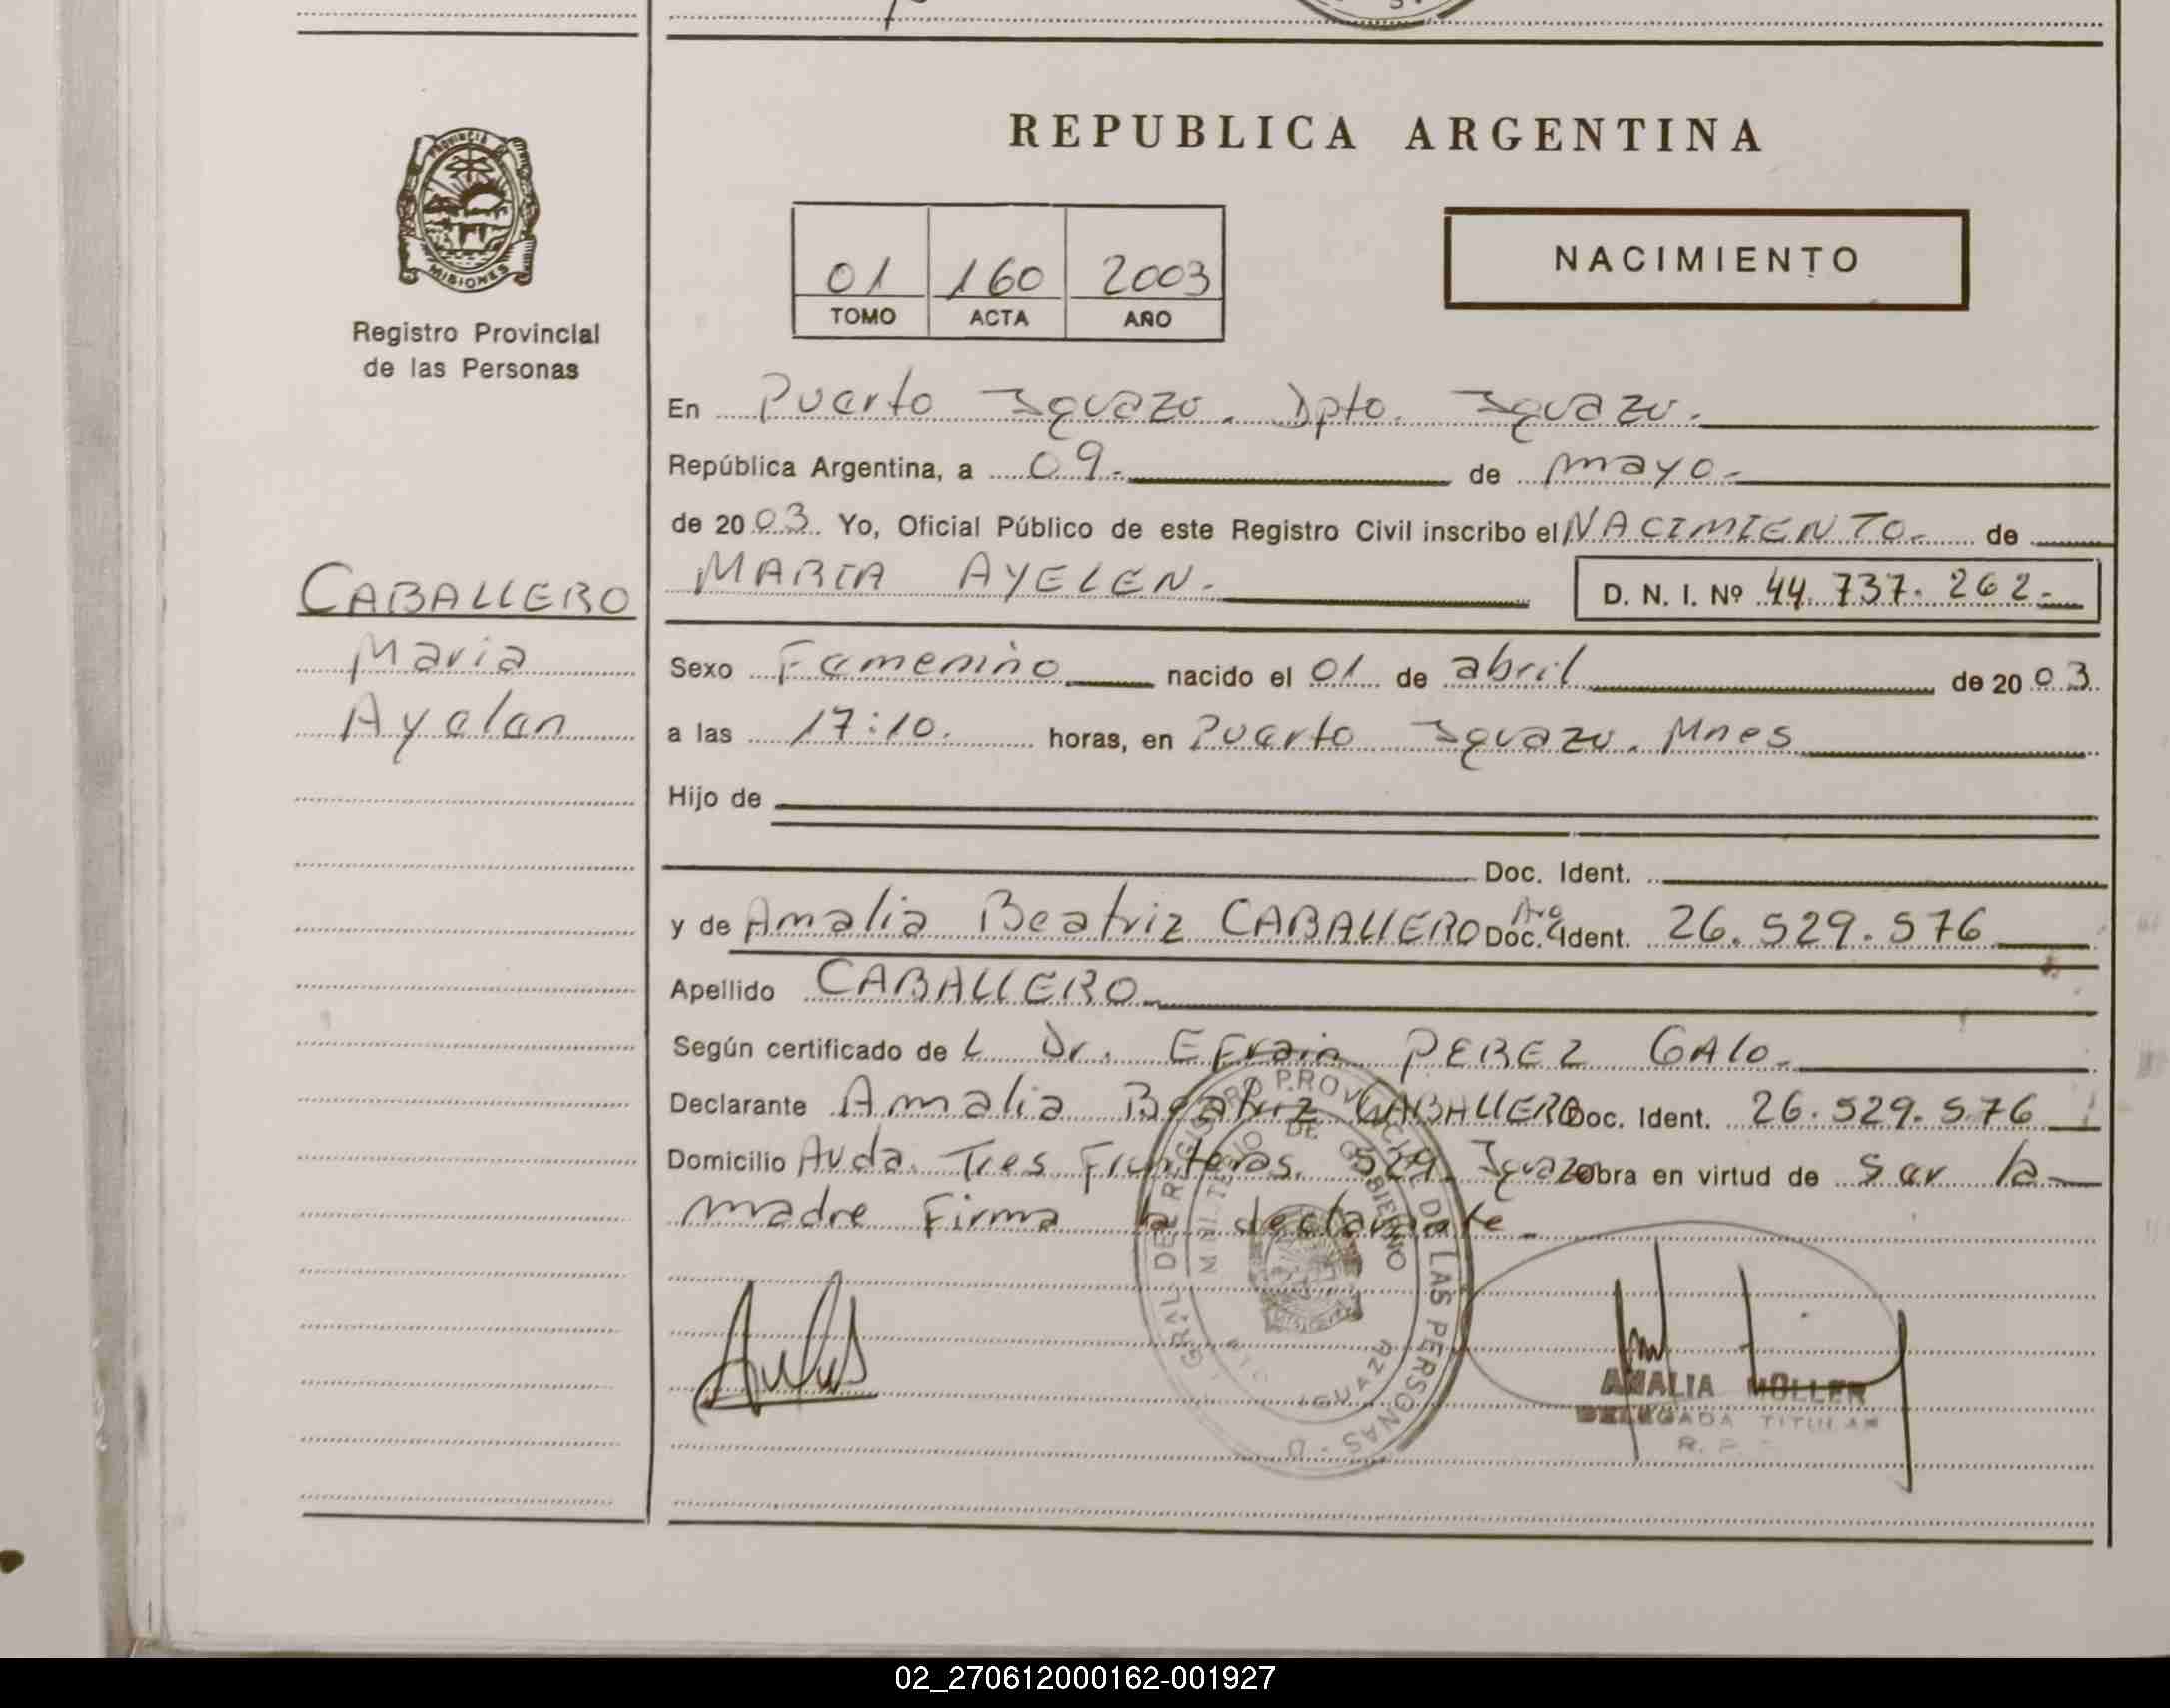 REPUBLICA ARGENTINA
PROVINCIA DE
MISIONES
Registro Provincial
de las Personas
NACIMIENTO
01 160 2003
TOMO ACTA AÑO
En Puerto Iguazu. Dpto. Iguazu.
República Argentina, a 09.- de mayo.-
de 2003. Yo, Oficial Público de este Registro Civil inscribo el NACIMIENTO.- de
MARIA AYELEN.- D. N. I. Nº 44.737.262.-
CABALLERO
Maria
Ayelen
Sexo Femenino nacido el 01 de abril de 2003
a las 17:10. horas, en Puerto Iguazu. Mnes
Hijo de
Doc. Ident.
y de Amalia Beatriz CABALLERO Arg Doc. Ident. 26.529.576
Apellido CABALLERO.-
Según certificado de L Dr. Efrain PEREZ GALO.-
Declarante Amalia Beatriz CABALLERO Doc. Ident. 26.529.576
Domicilio Avda. Tres Fronteras. 529. Iguazu Obra en virtud de ser la
madre Firma la declarante.-
GRAL. DE REGISTRO PROVINCIAL DE LAS PERSONAS - D
MINISTERIO DE GOBIERNO
IGUAZU
AMALIA MÖLLER
DELEGADA TITULAR
R. P.
02_270612000162-001927